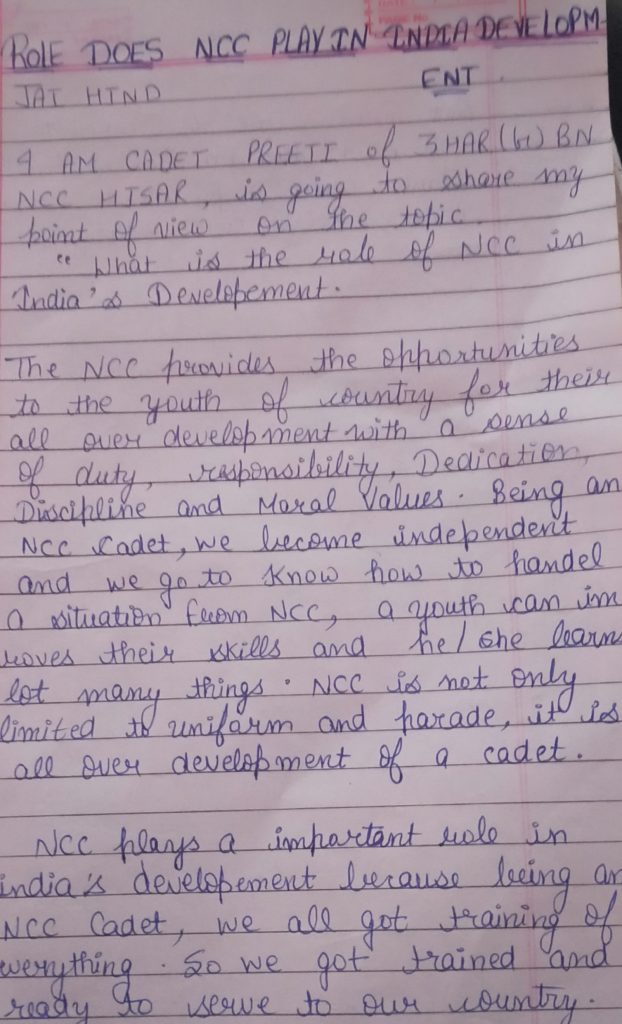 ROLE DOES NCC PLAY IN INDIA DEVELOPM-
ENT
JAI HIND
I AM CADET PREETI of 3HAR(G) BN
NCC HISAR, is going to share my
point of view on the topic
" What is the role of NCC in
India's Developement.
The NCC provides the opportunities
to the youth of country for their
all over development with a sense
of duty, responsibility, Dedication,
Discipline and Moral Values. Being an
NCC Cadet, we become independent
and we go to know how to handel
a situation from NCC, a youth can im
roves their skills and he/she learn
lot many things. NCC is not only
limited to uniform and parade, it is
all over development of a cadet.
NCC plays a important role in
india's developement because being an
NCC Cadet, we all got training of
everything. So we got trained and
ready to serve to our country.